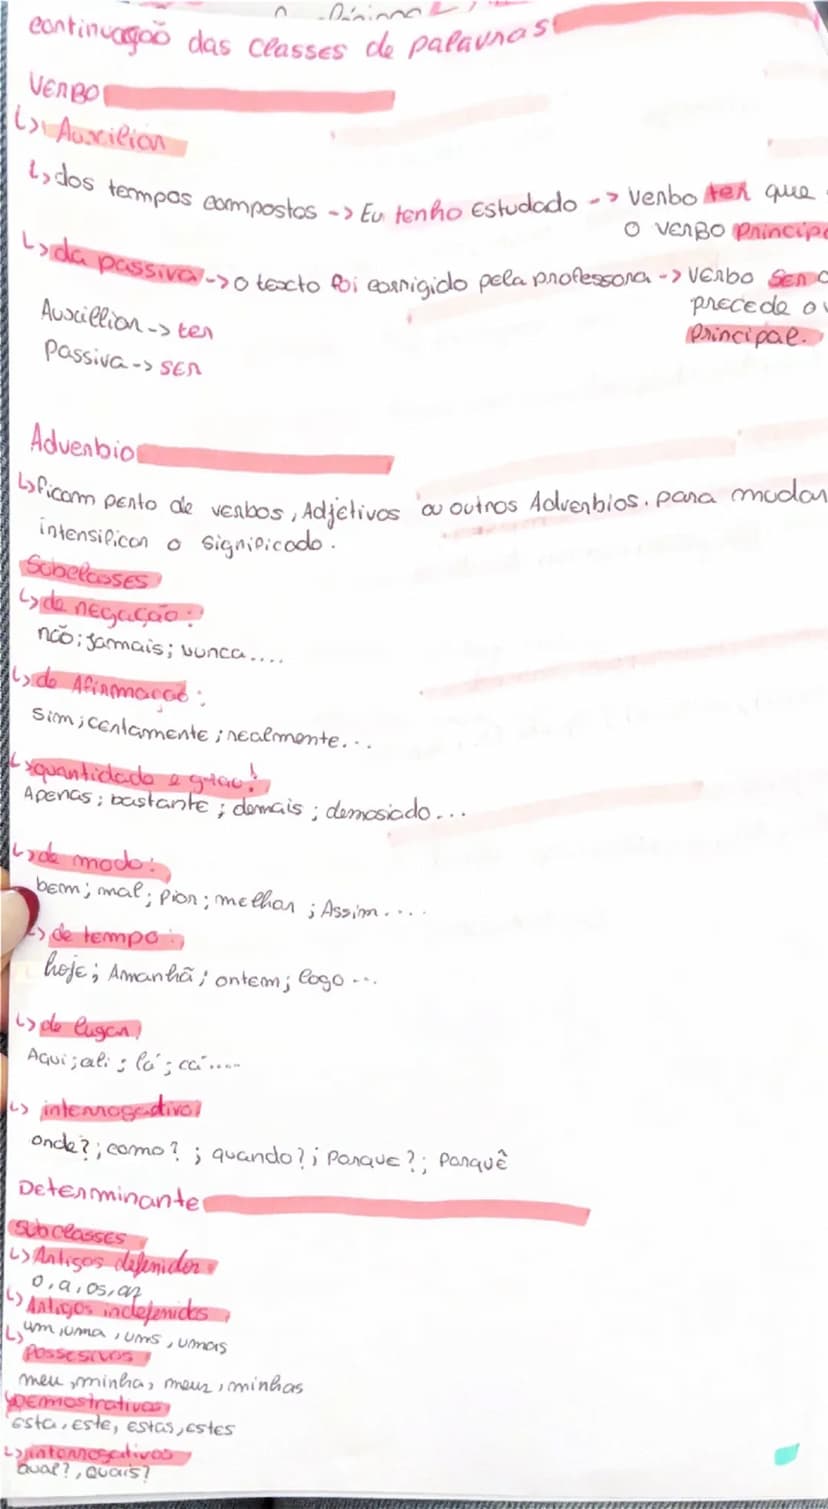 continuação das classes de palavras
VERBO
↳ Auxiliar
↳ dos tempos compostos -> Eu tenho Estudado -> Verbo ter que
o verbo princip
↳ da passiva -> o texto foi corrigido pela professora -> verbo ser
precede o
principal.
Auxilliar -> ter
Passiva -> SER
Adverbio
↳ ficam perto de verbos, Adjetivos ou outros Adverbios. para mudar
intensificar o significado.
Subclasses
↳ de negação:
não; jamais; nunca....
↳ de Afirmação:
Sim; certamente; realmente...
↳ quantidade e grau!
Apenas; bastante; demais; demasiado...
↳ de modo:
bem; mal; pior; melhor; Assim....
↳ de tempo:
hoje; Amanhã; ontem; logo...
↳ de lugar!
Aqui; ali; lá; cá....
↳ interrogativo!
onde?; como?; quando?; Porque?; Porquê
Determinante
subclasses
↳ Artigos defenidos
o, a, os, as
↳ Artigos indefenidos
↳ um, uma, ums, umas
Possesivos
meu, minha, meus, minhas
↳ Demostrativos
Esta, Este, Estas, Estes
↳ interrogativos
Qual?, Quais?